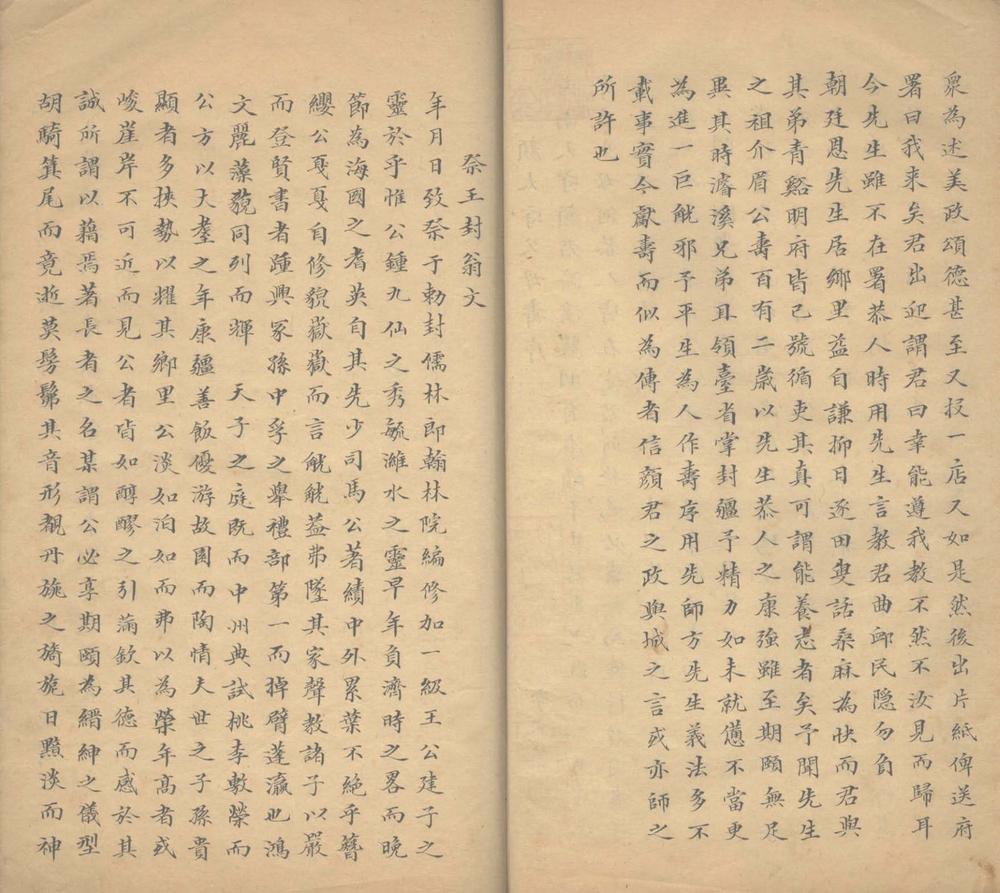 衆為述美政頌德甚至又投一店又如是然後出片紙俾送府
署曰我来矣君出迎謂君曰幸能遵我教不然不汝見而歸耳
今先生雖不在署恭人時用先生言教君曲卹民隐勿負
朝廷恩先生居鄉里益自謙抑日逐田叟話桑麻為快而君與
其弟青谿明府皆已號循吏其真可謂能養志者矣予聞先生
之祖介眉公壽百有二歲以先生恭人之康強雖至期頤無足
異其時濬溪兄弟且領臺省掌封疆予精力如未就憊不當更
為進一巨觥邪予平生為人作壽序用先師方先生義法多不
載事實今獻壽而似為傳者信顏君之政與城之言或亦師之
所許也
祭王封翁文
年月日致祭于勅封儒林郎翰林院編修加一級王公建子之
靈於乎惟公鍾九仙之秀毓濰水之靈早年負濟時之畧而晚
節為海國之耆英自其先少司馬公著績中外累葉不絶乎簪
纓公戛戛自修貌嶽嶽而言觥觥益弗墜其家聲教諸子以嚴
而登賢書者踵興冢孫中孚之舉禮部第一而掉臂蓬瀛也鴻
文麗藻藐同列而輝　天子之庭既而中州典試桃李敷榮而
公方以大耋之年康彊善飯優游故園而陶情夫世之子孫貴
顯者多挾勢以耀其鄉里公淡如泊如而弗以為榮年高者或
峻崖岸不可近而見公者皆如醇醪之引滿欽其德而感於其
誠所謂以藉焉著長者之名某謂公必享期頤為縉紳之儀型
胡騎箕尾而竟逝莫髣髴其音形覩丹旐之旖旎日黯淡而神